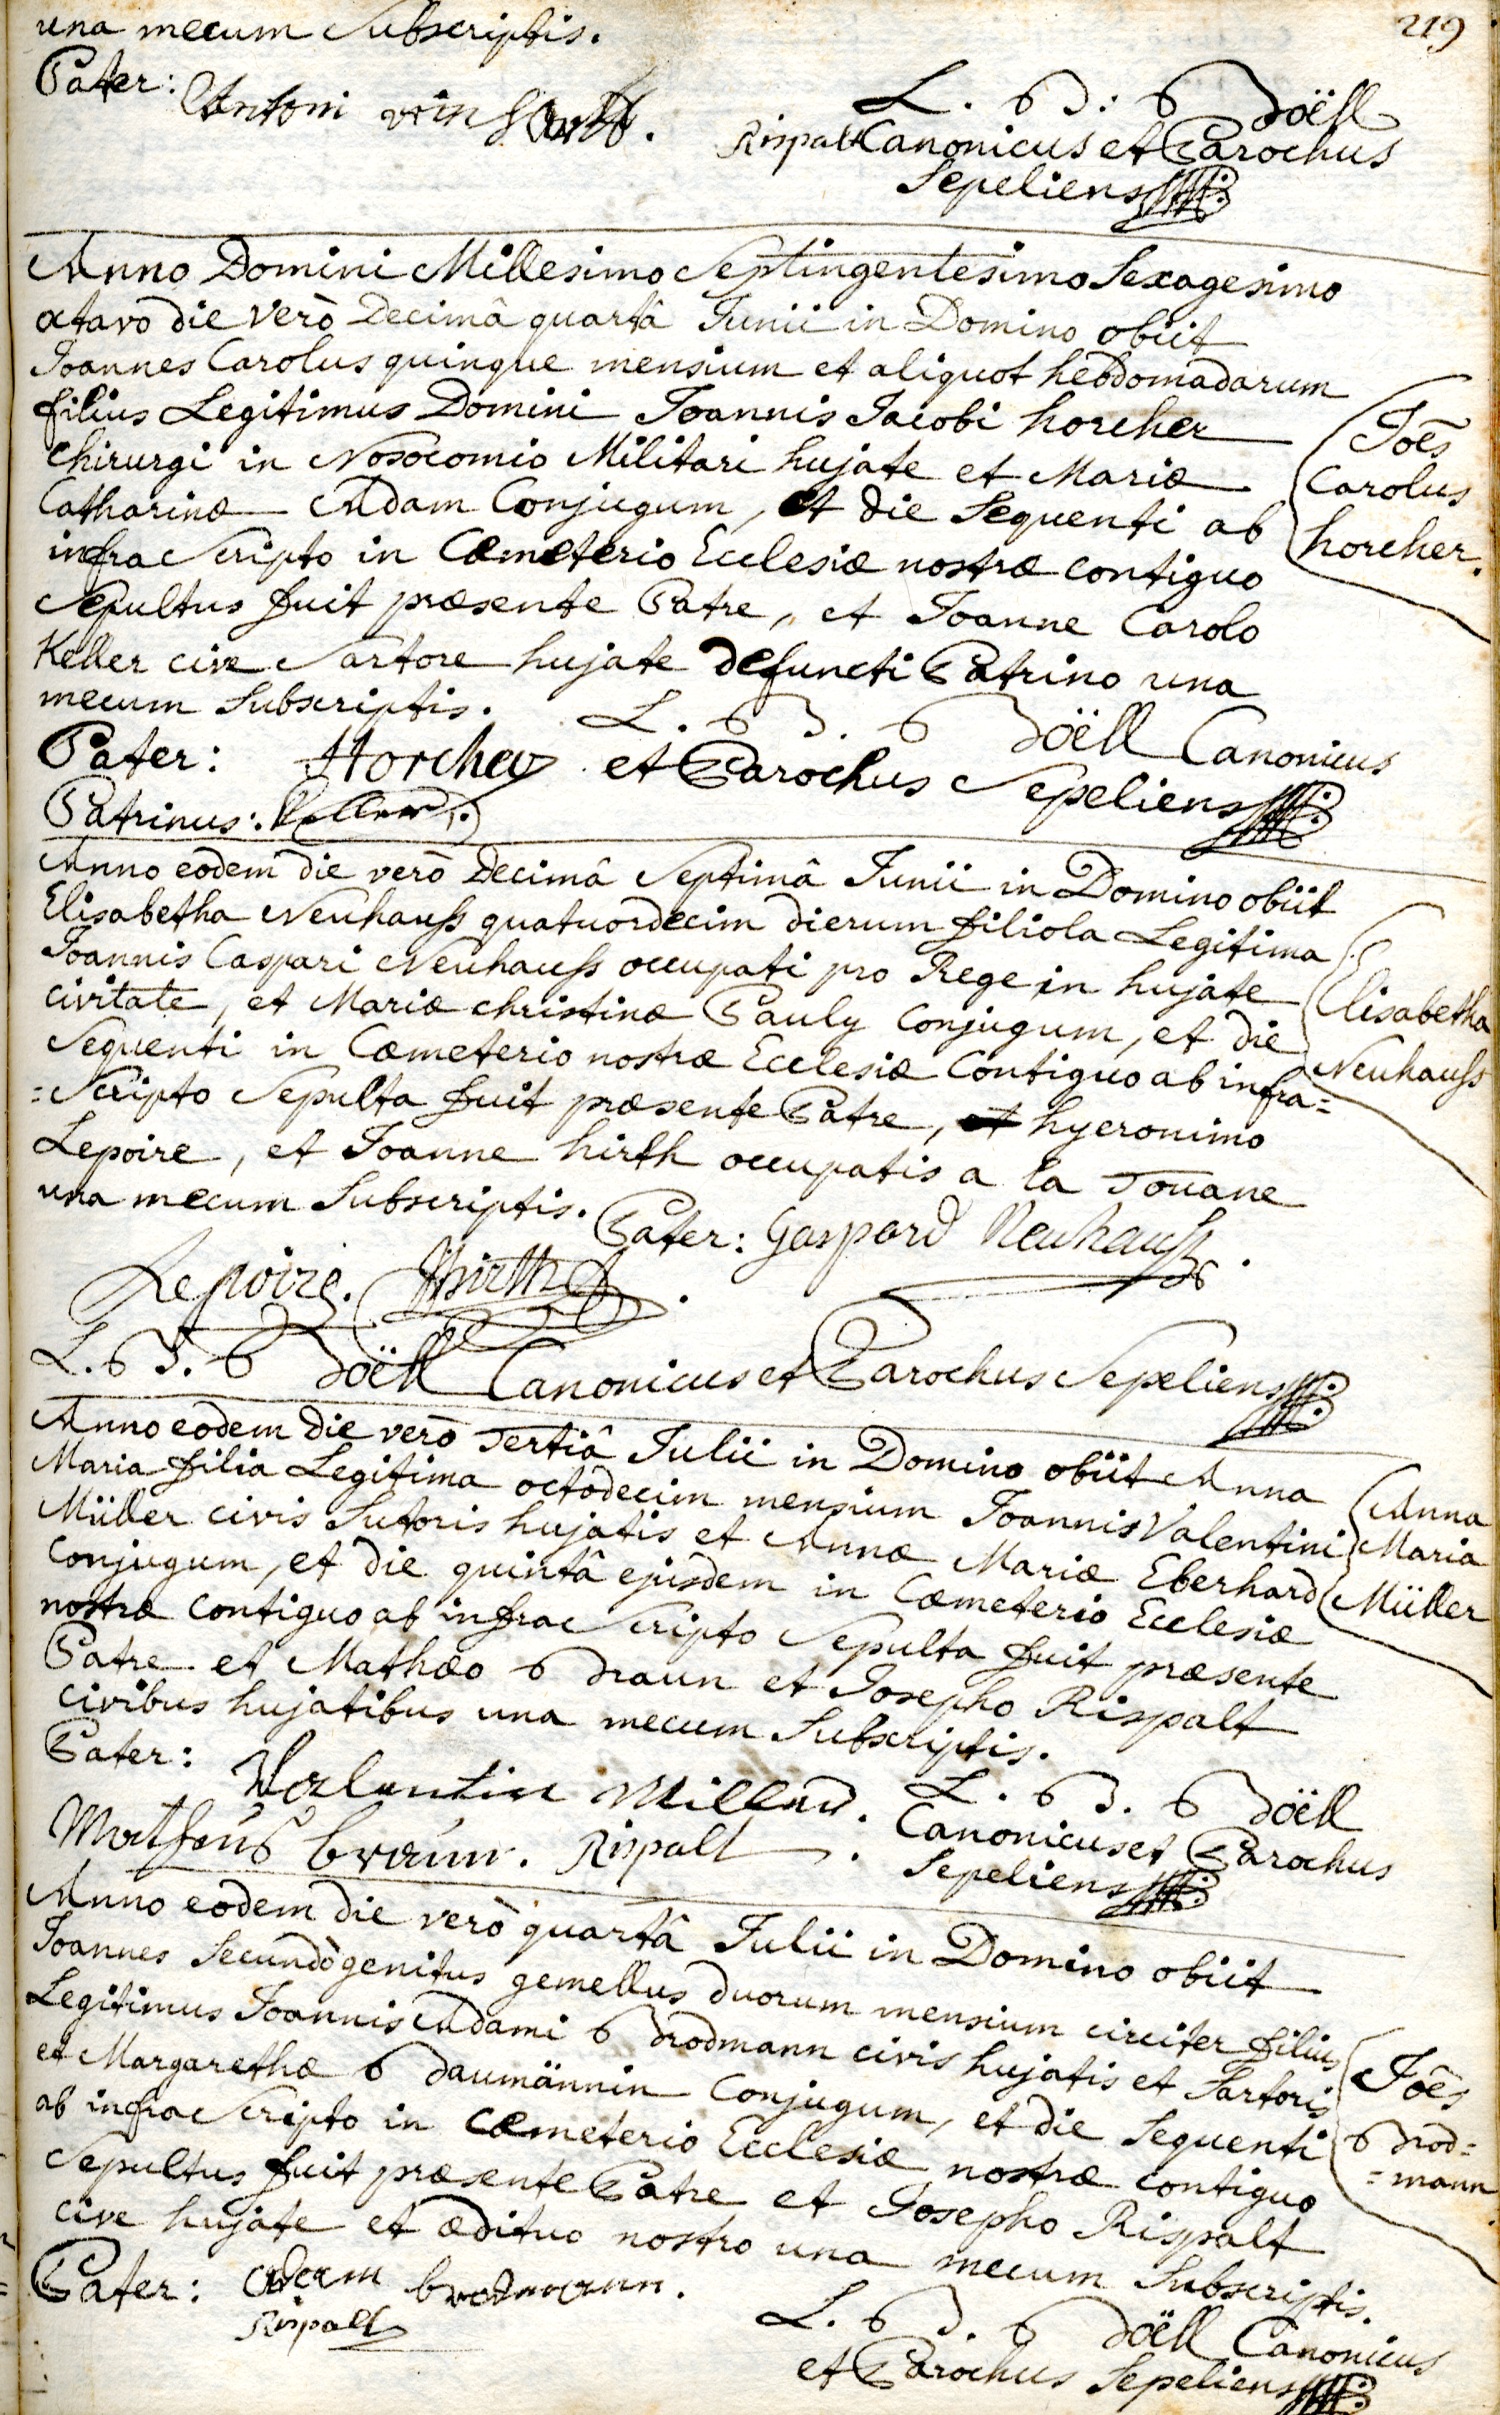 219
una mecum Subscriptis.
Pater: Antoni
L. B. Böell
Rispalt Canonicus et Parochus
Sepeliens
Anno Domini Millesimo Septingentesimo Sexagesimo
octavo die verò Decimâ quartâ Junii in Domino obiit
Joannes Carolus quinque mensium et aliquot hebdomadarum
filius Legitimus Domini Joannis Jacobi horcher
Chirurgi in Nosocomio Militari hujate et Mariæ
Catharinæ Adam Conjugum, et die Sequenti ab
infra Scripto in Cœmeterio Ecclesiæ nostræ contiguo
Sepultus fuit præsente Patre, et Joanne Carolo
Keller cive Sartore hujate defuncti Patrino una
mecum Subscriptis.
Joês
Carolus
horcher.
L. B. Böell Canonicus
Pater: Horcher et Parochus Sepeliens
Patrinus: Keller.
Anno eodem die verò Decimâ Septimâ Junii in Domino obiit
Elisabetha Neuhauss quatuordecim dierum filiola Legitima
Joannis Caspari Neuhauss occupati pro Rege in hujate
civitate, et Mariæ christinæ Pauly Conjugum, et die
Sequenti in Cœmeterio nostræ Ecclesiæ Contiguo ab infra=
=Scripto Sepulta fuit præsente Patre, et hyeronimo
Lepoire, et Joanne hirth occupatis a la Douane
una mecum Subscriptis.
Elisabetha
Neuhauss
Pater: Gaspard Neuhauss.
Lepoire. Hirth.
L. B. Böell Canonicus et Parochus Sepeliens
Anno eodem die verò Tertiâ Julii in Domino obiit Anna
Maria filia Legitima octodecim mensium Joannis Valentini
Müller civis Sutoris hujatis et Annæ Mariæ Eberhard
Conjugum, et die quintâ ejusdem in Cœmeterio Ecclesiæ
nostræ Contiguo ab infra Scripto Sepulta fuit præsente
Patre et Mathæo Braun et Josepho Rispalt
Civibus hujatibus una mecum Subscriptis.
Anna
Maria
Müller
Pater: Valentin Miller.
L. B. Böell
Matheus braun. Rispalt.
Canonicus et Parochus
Sepeliens
Anno eodem die verò quartâ Julii in Domino obiit
Joannes Secundògenitus gemellus duorum mensium circiter filius
Legitimus Joannis Adami Brodmann civis hujatis et Sartoris
et Margarethæ Baumännin Conjugum, et die Sequenti
ab infra Scripto in Cœmeterio Ecclesiæ nostræ contiguo
Sepultus fuit præsente Patre et Josepho Rispalt
cive hujate et ædituo nostro una mecum Subscriptis.
Joês
Brod=
=mann
Pater: Adam brodmann.
Rispalt
L. B. Böell Canonicus
et Parochus Sepeliens